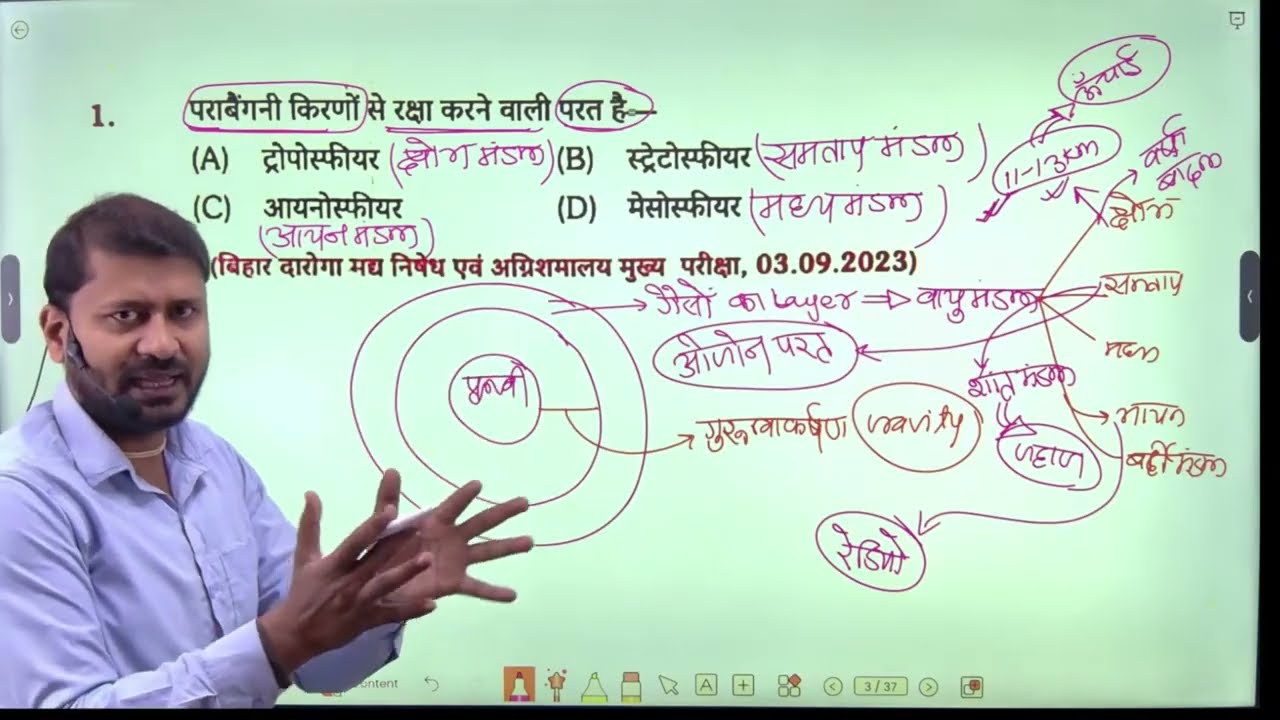 1. पराबैंगनी किरणों से रक्षा करने वाली परत है—
(A) ट्रोपोस्फीयर (क्षोभ मंडल) (B) स्ट्रेटोस्फीयर (समताप मंडल)
(C) आयनोस्फीयर (D) मेसोस्फीयर (मध्य मंडल)
(आयन मंडल)
(बिहार दारोगा मद्य निषेध एवं अग्निशमालय मुख्य परीक्षा, 03.09.2023)
11-13km
वर्षा
बादल
क्षोभ
गैसों का Layer ⇒ वायुमंडल
समताप
ओजोन परत
मध्य
शांत मंडल
पृथ्वी
आयन
गुरुत्वाकर्षण
Gravity
बर्हीमंडल
जहाज
रेडियो
ontent
A
3 / 37